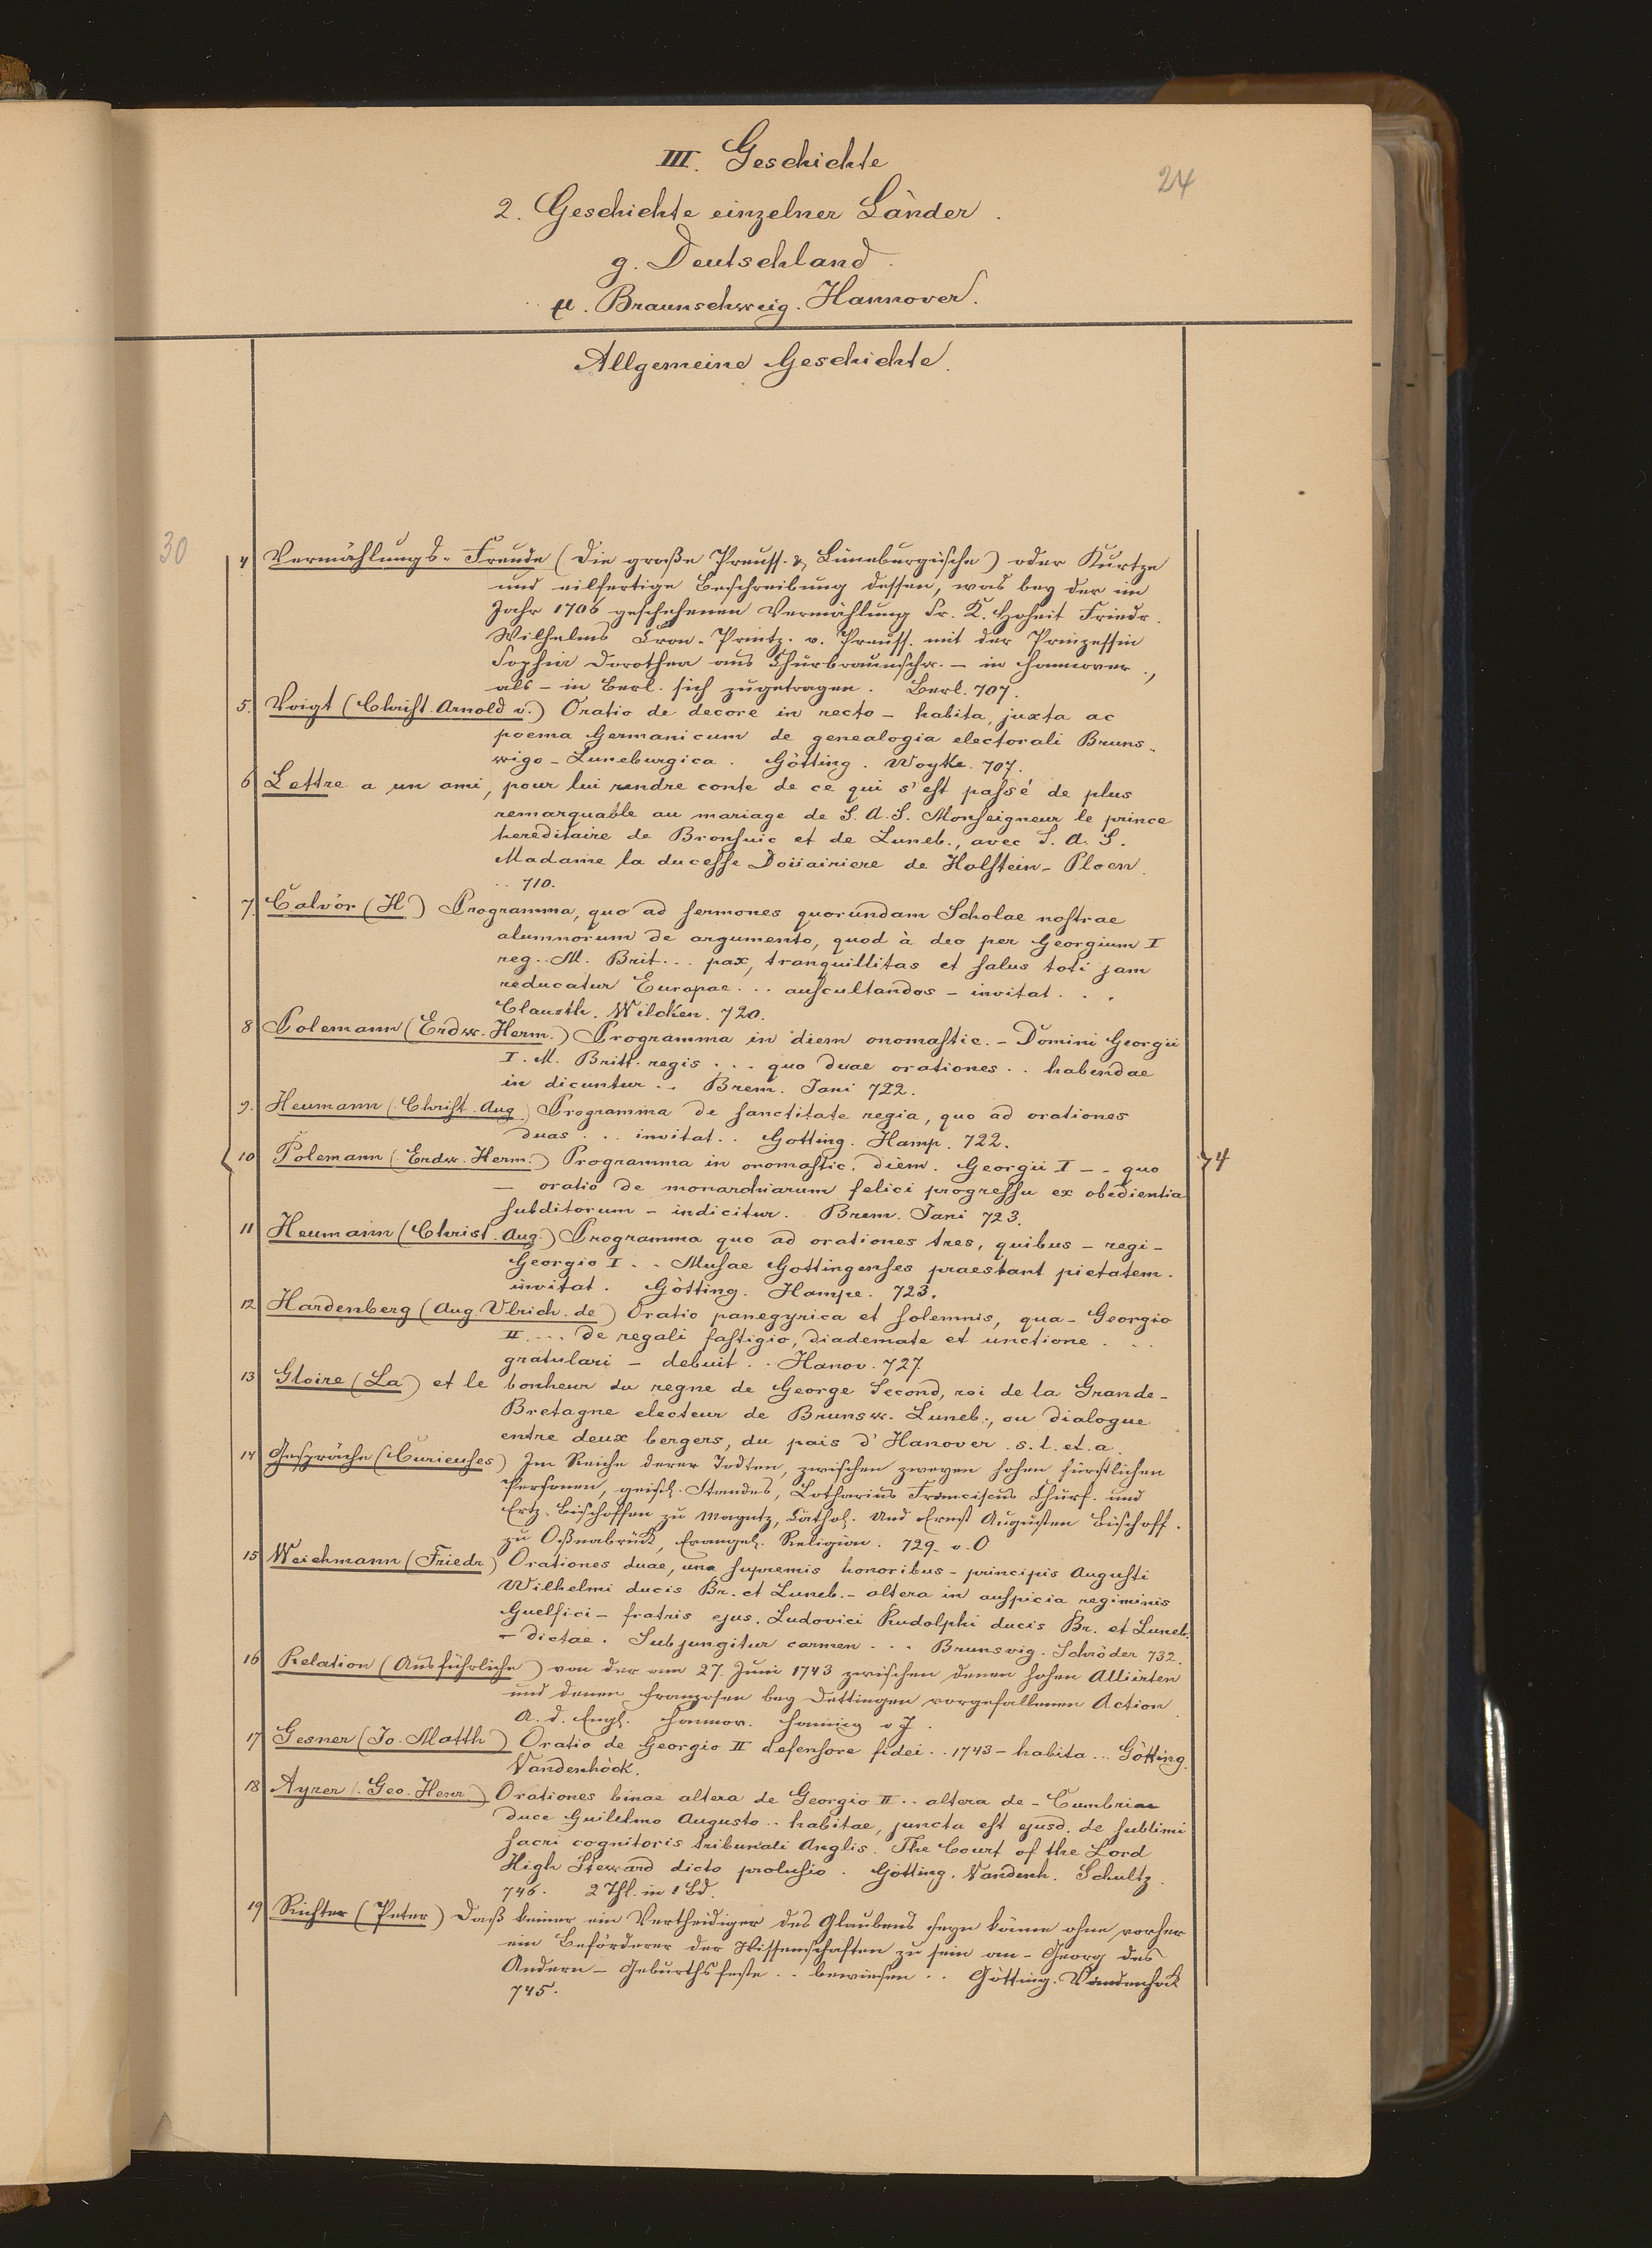 III. Geschichte
24
2. Geschichte einzelner Länder.
g. Deutschland.
µ. Braunschweig. Hannover.
Allgemeine Geschichte.
30
4 Vermählungs-Freude (Die große Preuss. & Lüneburgische) oder Kurtze
und eilfertige Beschreibung dessen, was bey der im
Jahr 1706 geschehenen Vermählung Sr. K. Hoheit Friedr.
Wilhelms Cron-Printz. v. Preuss. mit der Prinzessin
Sophia Dorothea aus Churbraunschw. – in Hannover.,
als – in Berl. sich zugetragen. Berl. 707.
5. Voigt (Christ. Arnold v.) Oratio de decore in recto – habita, juxta ac
poema Germanicum de genealogia electorali Bruns-
wigo-Luneburgica. Götting. Woyke. 707.
6 Lettre a un ami, pour lui rendre conte de ce qui s'est passé de plus
remarquable au mariage de S. A. S. Monseigneur le prince
hereditaire de Bronsuic et de Luneb., avec S. A. S.
Madame la ducesse Doüairiere de Holstein-Ploen.
.. 710.
7. Calvör (H.) Programma, quo ad sermones quorundam Scholae nostrae
alumnorum de argumento, quod à deo per Georgium I
reg. M. Brit... pax, tranquillitas et salus toti jam
reducatur Europae... auscultandos – invitat...
Clausth. Wilcken. 720.
8 Polemann (Erdw. Herm.) Programma in diem onomastic. – Domini Georgii
I. M. Britt. regis... quo duae orationes.. habendae
in dicuntur.. Brem. Jani 722.
9. Heumann (Christ. Aug) Programma de sanctitate regia, quo ad orationes
duas... invitat.. Gotting. Hamp. 722.
10 Polemann (Erdw. Herm.) Programma in onomastic. diem. Georgii I – – quo
– oratio de monarchiarum felici progressu ex obedientia
subditorum – indicitur. Brem. Jani 723.
74
11 Heumann (Christ. Aug.) Programma quo ad orationes tres, quibus – regi –
Georgio I... Musae Gottingenses praestant pietatem.
invitat. Götting. Hampe. 723.
12 Hardenberg (Aug. Ulrich. de) Oratio panegyrica et solemnis, qua – Georgio
II.... de regali fastigio, diademate et unctione...
gratulari – debuit.. Hanov. 727.
13 Gloire (La) et le bonheur du regne de George Second, roi de la Grande-
Bretagne electeur de Brunsw. Luneb., ou dialogue
entre deux bergers, du pais d'Hanover. s. l. et. a.
14 Gespräche (Curieuses) Im Reiche derer Todten, zwischen zweyen hohen fürstlichen
Personen, geistl. Standes, Lotharius Franciscus Churf. und
Ertz-Bischoffen zu Mayntz, Cathol. Und Ernst Augusten Bischoff.
zu Oßnabrück, Evangel. Religion. 729. v. O
15 Weichmann (Friedr) Orationes duae, una supremis honoribus – principis Augusti
Wilhelmi ducis Br. et Luneb. – altera in auspicia regiminis
Guelfici – fratris ejus. Ludovici Rudolphi ducis Br. et Luneb.
– dictae. Subjungitur carmen... Brunsvig. Schröder 732.
16 Relation (Ausführliche) von der am 27. Juni 1743 zwischen denen hohen Alliirten
und denen Franzosen bey Dettingen vorgefallenen Action.
A. d. Engl. Hannov. v J.
17 Gesner (Jo. Matth) Oratio de Georgio II defensore fidei.. 1743 – habita... Götting.
Vandenhöck.
18 Ayrer (Geo. Henr) Orationes binae altera de Georgio II.. altera de – Cumbriae
duce Guilelmo Augusto.. habitae, juncta est ejusd. de sublimi
sacri cognitoris tribunali Anglis. The Court of the Lord
High Steward dicto prolusio. Götting. Vandenh. Schultz.
746. 2 Thl. in 1 Bd.
19 Richter (Peter) Daß keiner ein Vertheidiger des Glaubens seyn könne ohne vorher
ein Beförderer der Wissenschaften zu sein an – Georg des
Andern – Geburthsfeste.. bewiesen.. Götting. Vandenhöck
745.